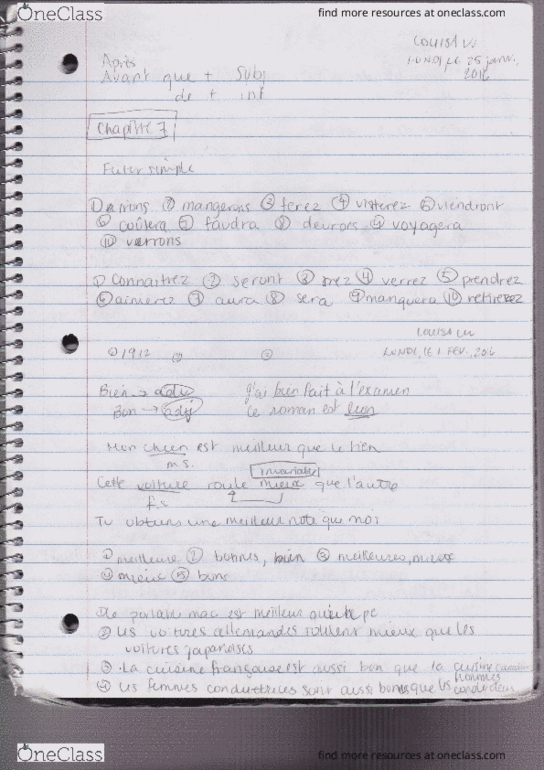 OneClass
find more resources at oneclass.com
LOUISA
LUNDI, LE 25 janvi,
2016
Après
Avant que + Subj
de + inf
Chapitre 7
Futur simple
① irons ② mangerons ③ ferez ④ visterez ⑤ viendront
⑥ coûtera ⑦ faudra ⑧ devrons ⑨ voyagera
⑩ verrons
① Connaitrez ② seront ③ irez ④ verrez ⑤ prendrez
⑥ aimerez ⑦ aura ⑧ sera ⑨ manquera ⑩
LOUISA
LUNDI, LE 1 FEV, 2016
① 1912 ② ③
Bien → adv J'ai bien fait à l'examen
Bon → adj Ce roman est bon
Mon chien est meilleur que le tien
m.s.
invariable
Cette voiture roule mieux que l'autre
f.s
Tu obtiens une meilleur note que moi
① meilleure ② bonnes, bien ③ meilleures, mieux
④ mieux ⑤ bons
① Le portable mac est meilleur que le pc
② Les voitures allemandes roulent mieux que les
voitures japonaises
③ La cuisine française est aussi bon que la cuisine
④ Les femmes conductrices sont aussi bonnes que les hommes
conducteurs
OneClass
find more resources at oneclass.com